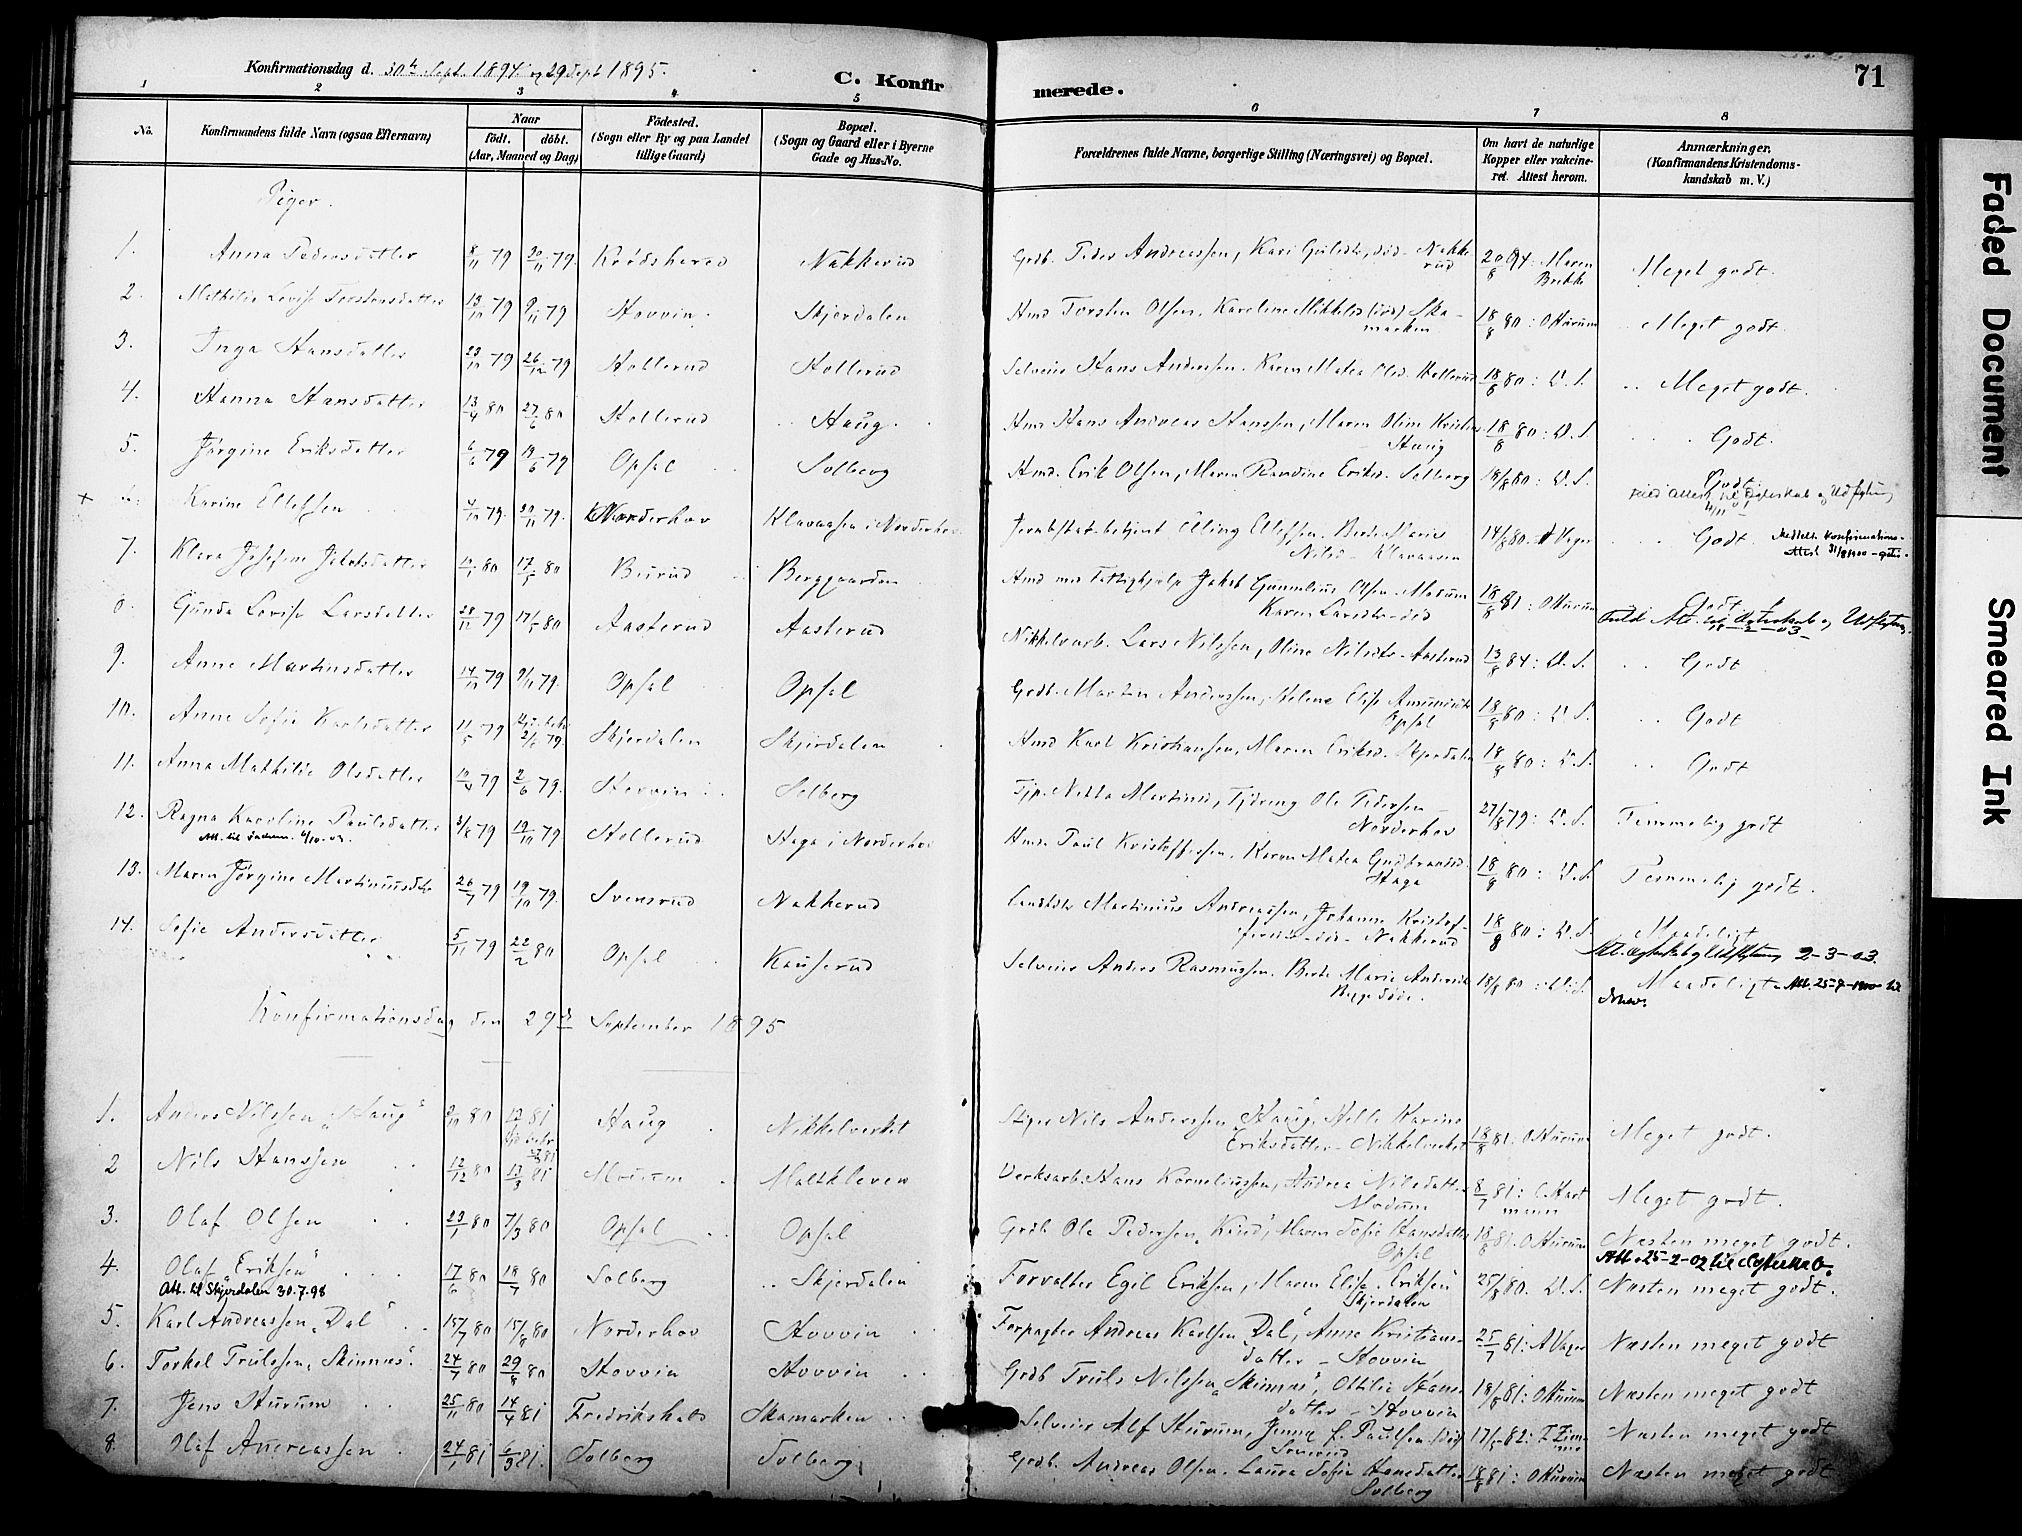 Konfirmationsdag d. 30te Sept. 1894 og 29 Sept 1895.
C. Konfirmerede.
71
1 2 3 4 5 6 7 8
No.
Konfirmandens fulde Navn (ogsaa Efternavn)
Naar
födt. döbt.
(Aar, Maaned og Dag)
Födested.
(Sogn eller By og paa Landet
tillige Gaard)
Bopæl.
(Sogn og Gaard eller i Byerne
Gade og Hus-No.
Forældrenes fulde Navne, borgerlige Stilling (Næringsvei) og Bopæl.
Om havt de naturlige
Kopper eller vakcine-
ret. Attest herom.
Anmærkninger.
(Konfirmandens Kristendoms-
kundskab m. V.)
Piger.
1. Anna Pedersdatter 8/11 79 30/11 79. Krödsherad Nakkerud Grdb. Peder Andreassen, Kari Gulsdtr, död - Nakke
rud 20/8 94: Maren
Brekke Meget godt.
2. Mathilde Lovise Torstensdatter 13/10 79 9/11 79 Hovvin. Skjerdalen Hmd Torsten Olsen, Karoline Mikkelsd (död) Ska-
marken 18/8 80: OHurum Meget godt.
3. Inga Hansdatter 23/10 79 26/12 79 Hollerud Hollerud Selveier Hans Andersen. Karen Matea Olsd. Hollerud 18/8 80: D. S. Meget godt.
4. Hanna Hansdatter 13/4 80 27/6 80 Hollerud Haug. Hmd Hans Andreas Hanssen, Maren Oline Kristens
Haug 18/8 80: D. S. Godt.
5. Jörgine Eriksdatter 6/6 79 19/6 79 Opsal Solberg Hmd. Erik Olsen, Maren Randine Eriksd. Solberg 18/8 80: D. S. Godt.
x 6. Karine Ellefsen 4/10 79. 29/11 79. Norderhov Klavaasen i Norderhov. Jernbstat. betjent Elling Ellefsen. Marie
Nilsd - Klavaasen 14/8 80. A Vager Godt Meddelt Konfirmations-
Attest 31/8 1900 - gati.
7. Klara Josefine Jakobsdatter 80 17/5 80 Burud Berggaarden Hmd med Fattighjelp Jakob Gunnelius Olsen - Modum
Karen Larsdtr - död 18/8 81: OHurum Godt
8. Gunda Lovise Larsdatter 28/12 79 17/5 80 Aasterud Aasterud Nikkelvarb. Lars Nilssen, Oline Nilsdtr - Aasterud 13/8 84: D. S. Godt
9. Anne Martinsdatter 14/10 79 9/11 79. Opsal Opsal Grdb. Martin Anderssen, Helene Elise Amundsdtr
Opsal 18/8 80: D. S. Godt
10. Anne Sofie Karlsdatter 11/5 79 79. Skjerdalen Skjerdalen Hmd Karl Kristiansen, Maren Eriksd. Skjerdalen 18/8 80: D. S. Godt
11. Anna Mathilde Olsdatter 79 2/6 79. Hovvin Solberg Tjp. Netta Martinsd, Tjdreng Ole Pedersen -
Norderhov 27/8 79: D. S. Temmelig godt
12. Ragna Karoline Paulsdatter 3/8 79 19/10 79 Hollerud Haga i Norderhov Hmd Paul Kristoffersen. Karen Matea Gudbrandsd.
Haga 18/8 80: D. S. Temmelig godt.
13. Maren Jörgine Martiniusdtr 26/7 79 19/10 79. Svensrud Nakkerud Martinius Andreassen, Johanne Kristof-
fersd - död - Nakkerud 18/8 80: D. S. Maadeligt
2-3-03.
14. Sofie Andersdatter 5/11 79 22/2 80 Opsal Kauserud Selveier Anders Rasmussen. Berte Marie Andersd
Begge döde. 18/8 80: D. S. Maadeligt Att. 25-9-1900 til
Konfirmationsdag den 29de September 1895
1. Anders Nilssen "Haug" 2/10 80 81 Haug Nikkelverket Stiger Nils Anderssen Haug. Helle Karine
Eriksdatter - Nikkelverket 18/8 81. OHurum Meget godt.
2 Nils Hanssen 12/12 80 13/3 81 Modum Maltkleven Verksarb. Hans Korneliussen, Andrea Nilsdatter
Modum 8/7 81: C. Hart
mann Meget godt.
3. Olaf Olsen 23/1 80 7/3 80 Opsal Opsal Grdb Ole Pedersen, Maren Sofie Hansdatter
Opsal 18/8 81. OHurum Næsten meget godt.
Att. 25-2-02 til Ægteskab.
4. Olaf "Eriksen" 17/6 80 18/7 80 Solberg Skjerdalen Forvalter Egil Eriksen, Maren Elise Eriksen
Skjerdalen 25/8 80. D. S. Næsten meget godt.
Att. til Skjerdalen 30.7.98
5. Karl Andreassen "Dal" 15/7 80 15/8 80 Norderhov Hovvin Forpagter Andreas Karlsen Dal, Anne Kristians-
datter - Hovvin 25/7 81: A Vager Næsten meget godt
6. Torkel Trulssen "Skinnes". 24/7 80 29/8 80 Hovvin Hovvin Grdb Truls Nilssen "Skinnes", Ottilie Hans-
datter - Hovvin 18/8 81: OHurum Næsten meget godt
7. Jens Hurum 25/11 80 14/4 81 Fredrikshald Skamarken Selveier Alf Hurum, Jenny f. Paulsen (död) 17/5 82: Næsten meget godt
8. Olaf Andreassen 24/1 81 6/3 81. Solberg Solberg Grdb. Andreas Olsen. Laura Sofie Hansdatter
Solberg 18/8 81: OHurum Næsten meget godt
Faded Document
Smeared Ink